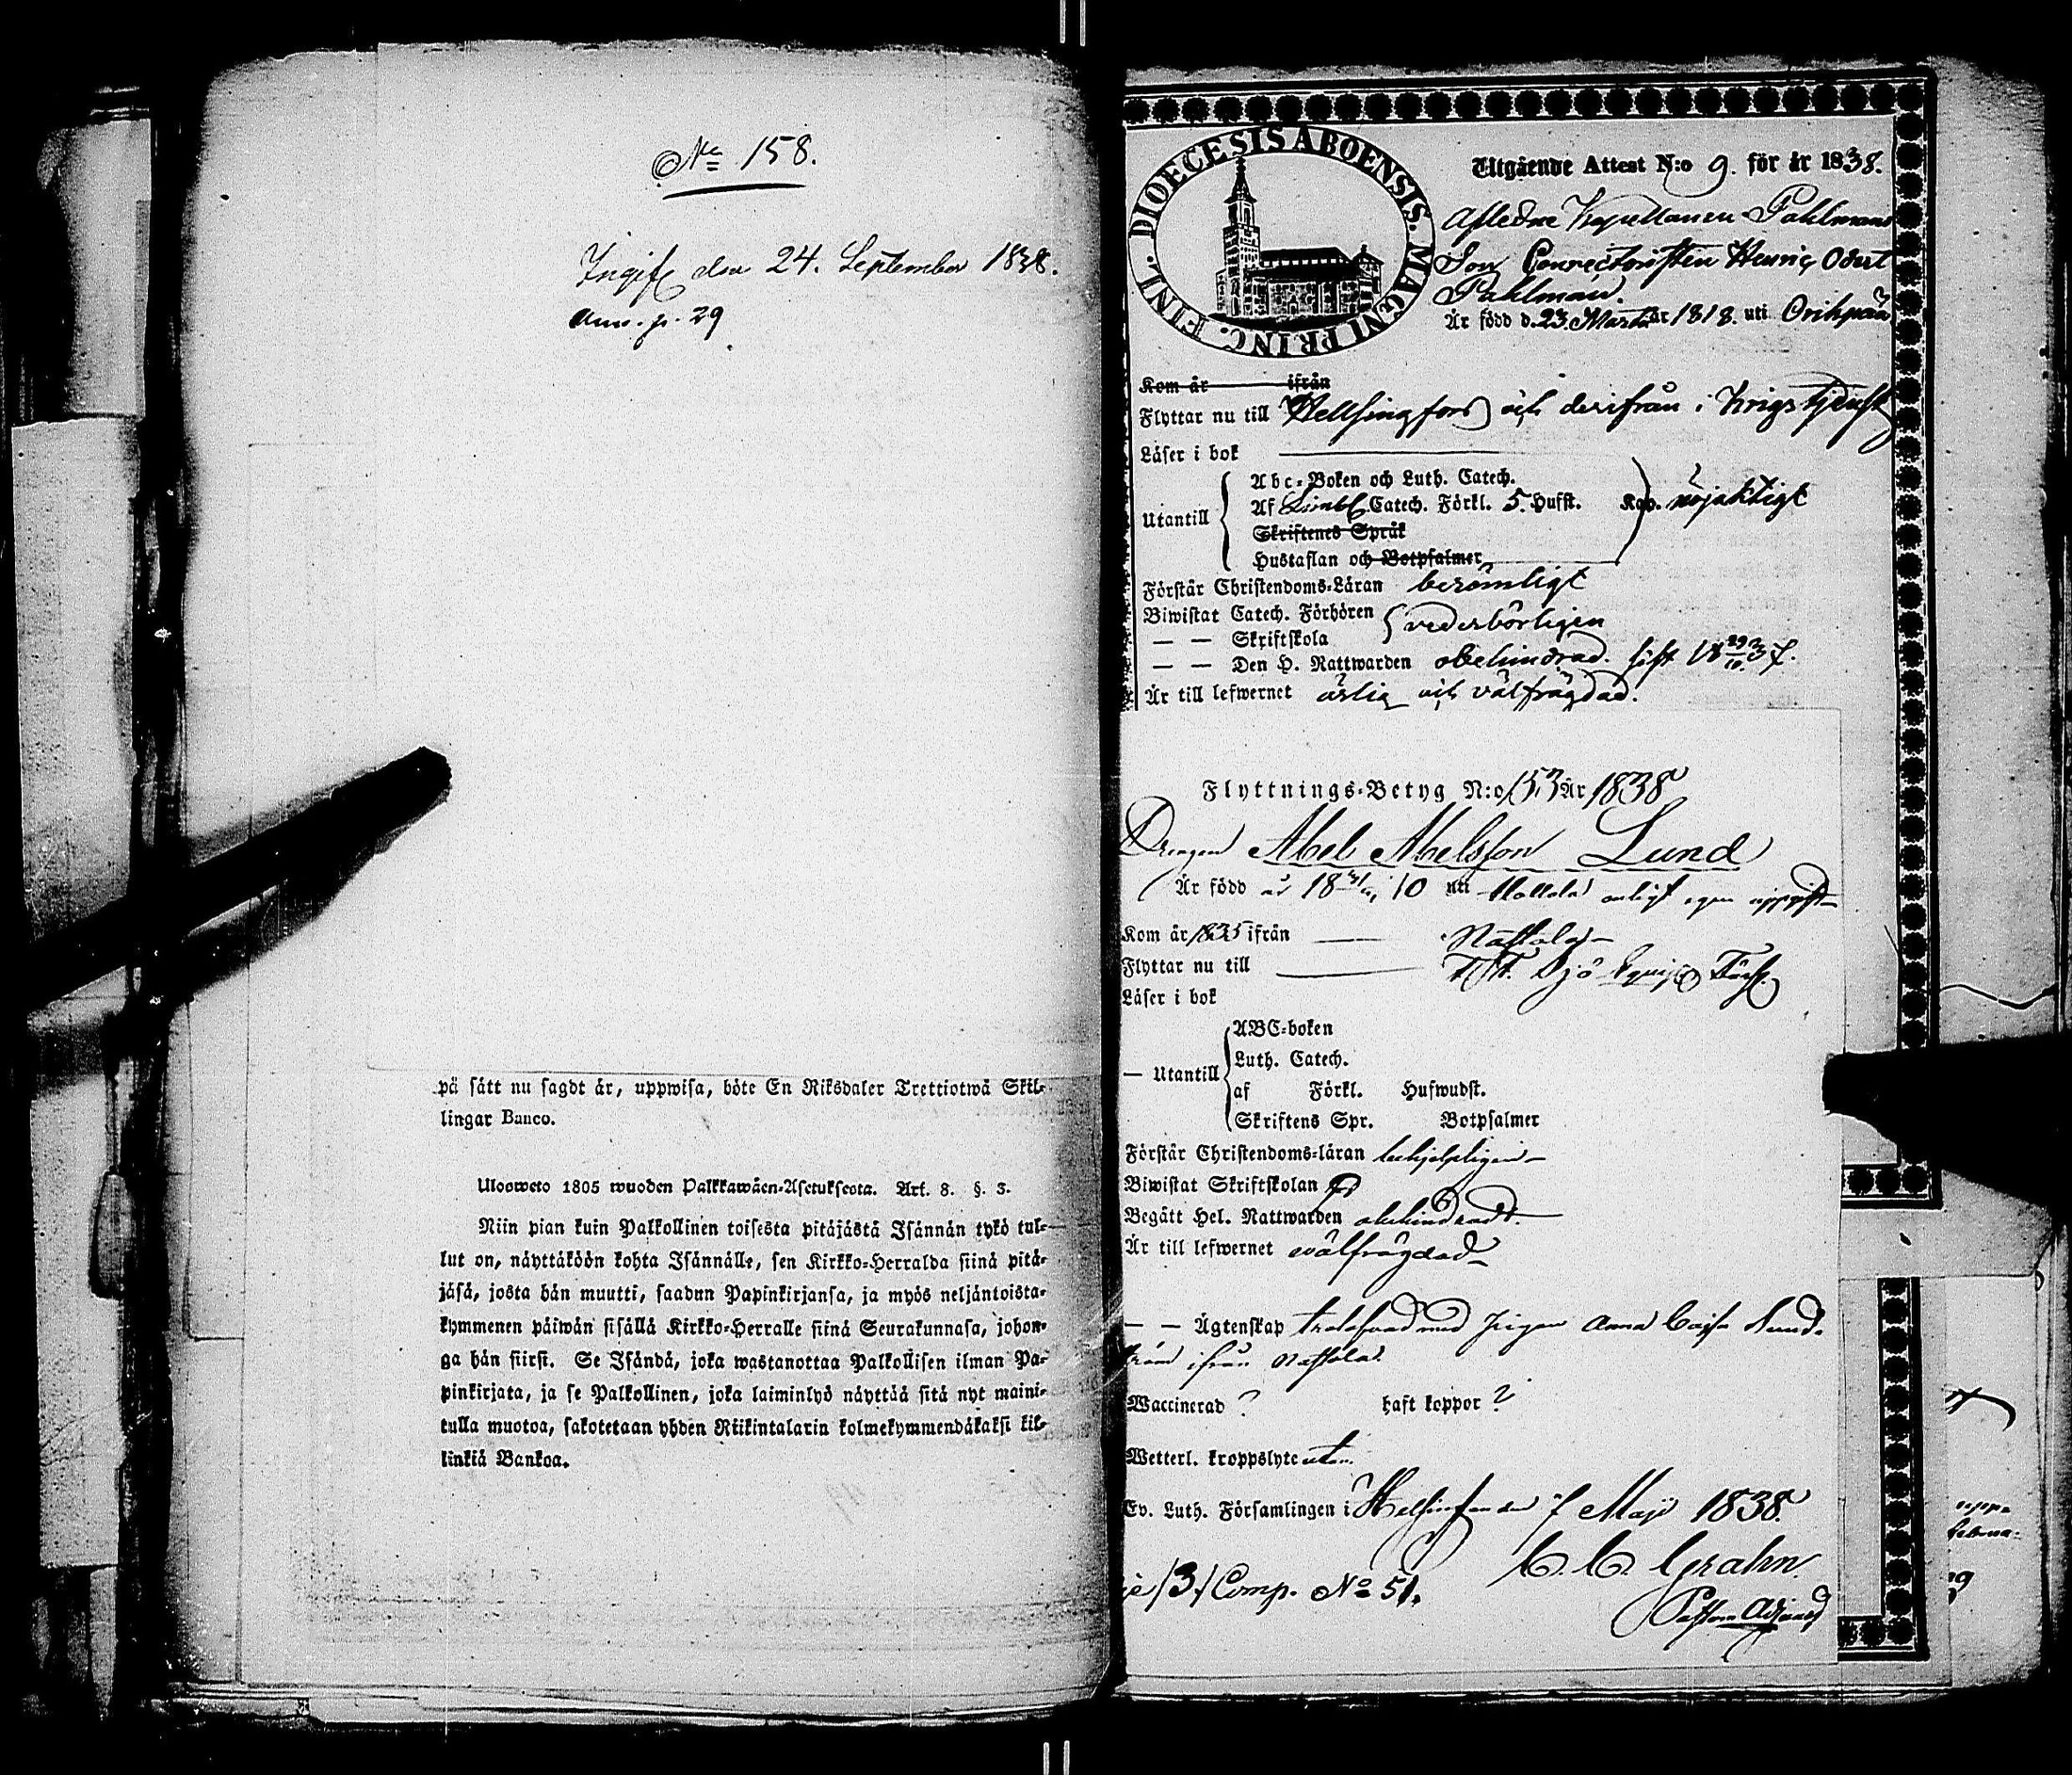 No 158.
Ingift den 24. September 1838.
Ann. p. 29
på sått nu sagdt år, uppwisa, böte En Riksdaler Trettiotwå Skil-
lingar Banco.
Ulosweto 1805 wuoden Palkkawäen-Asetuksesta. Art. 8. §. 3.
Niin pian kuin Palkollinen toisesta pitäjästä Isännän tykö tul-
lut on, näyttäköön kohta Isännälle, sen Kirkko-Herralda siinä pitä-
jäsä, josta hän muutti, saadun Papinkirjansa, ja myös neljäntoista-
kymmenen päiwän sisällä Kirkko-Herralle siinä Seurakunnasa, johon-
ga hän siirst. Se Isändä, joka wastanottaa Palkollisen ilman Pa-
pinkirjata, ja se Palkollinen, joka laiminlyö näyttää sitä nyt maini-
tulla muotoa, sakotetaan yhden Riikintalarin kolmekymmendäkaksi kil-
linkiä Bankoa.
DIOECESIS ABOENSIS. MAGNI PRINC. FINL.
Utgående Attest N:o 9. för år 1838.
Afledne Kapellanen Pahlmans
Son Conrectoristen Henric Odert
Pahlman.
Är född d. 23 Martii år 1818. uti Oripää
Kom år ifrån
Flyttar nu till Hellsingfors och derifrån i Krigstjenst
Läser i bok
Utantill
Abc-Boken och Luth. Catech.
Af Catech. Förkl. 5. Hufst. nöjaktigt
Skriftenes Språk
Hustaflan och Botpsalmer
Förstår Christendoms-Läran berömligt
Biwistat Catech. Förhören
— — Skriftskola vederbörligen
— — Den H. Nattwarden obehindrad. sist 18 29/10 37.
Är till lefwernet ärlig och välfrägdad.
Flyttnings-Betyg N:o 153 År 1838
Drengen Abel Abelsson Lund
Är född år 18 10 uti Hollola enligt egen uppgift
Kom år 1835 ifrån Nastola
Flyttar nu till Sjö Equipage
Läser i bok
— Utantill
ABC-boken
Luth. Catech.
af Förkl. Hufwudst.
Skriftens Spr. Botpsalmer
Förstår Christendoms-läran behjelpligen
Biwistat Skriftskolan
Begått Hel. Nattwarden obehindradt.
Är till lefwernet wälfrägdad
— — Ägtenskap trolofwad med pigan Anna Cajsa Lund-
ström ifrån Nastola.
Waccinerad ? haft koppor ?
Wetterl. kroppslyte utan.
Ev. Luth. Församlingen i Helsingfors den 7 Maji 1838.
C. C. Grahn.
Pastors Adjunct
13 Comp. No 51.